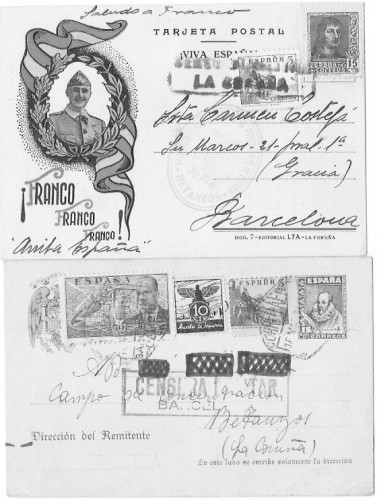 Saludo a Franco
TARJETA POSTAL
¡VIVA ESPAÑA!
ESPAÑA CORREOS 15
LA CORUÑA
Srta Carmen
San Marcos - 21 - pral. 1ª
(Gracia)
Barcelona
¡FRANCO
FRANCO
FRANCO!
"Arriba España"
MOD. 7 - EDITORIAL LYA - LA CORUÑA
ESPAÑA
10
ESPAÑA
ESPAÑA
CORREOS
CENSURA MILITAR
Campo de Concentración
Betanzos
(La Coruña)
Dirección del Remitente
En este lado se escribe solamente la dirección